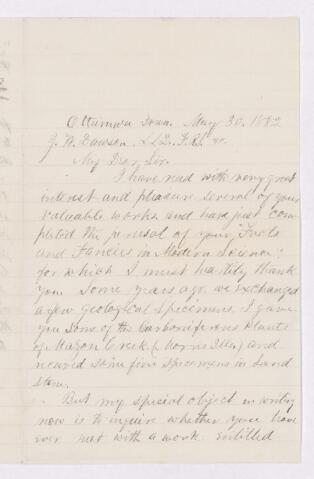 Ottumwa Iowa. May 30. 1882
J. W. Dawson. LLD. F.R.S. &c.
My Dear Sir.
I have read with very great
interest and pleasure several of your
valuable works. and have just com-
pleted the perusal of your "Facts
and Fancies in Modern Science":
for which I must heartily thank
you. Some years ago. we exchanged
a few Geological Specimens. I gave
you some of the Carboniferous Plants
of Mazon Creek (Morris Ills) and
received some fine specimens in Sand
stone.
But my special object in writing
now is to inquire whether you have
ever met with a work entitled